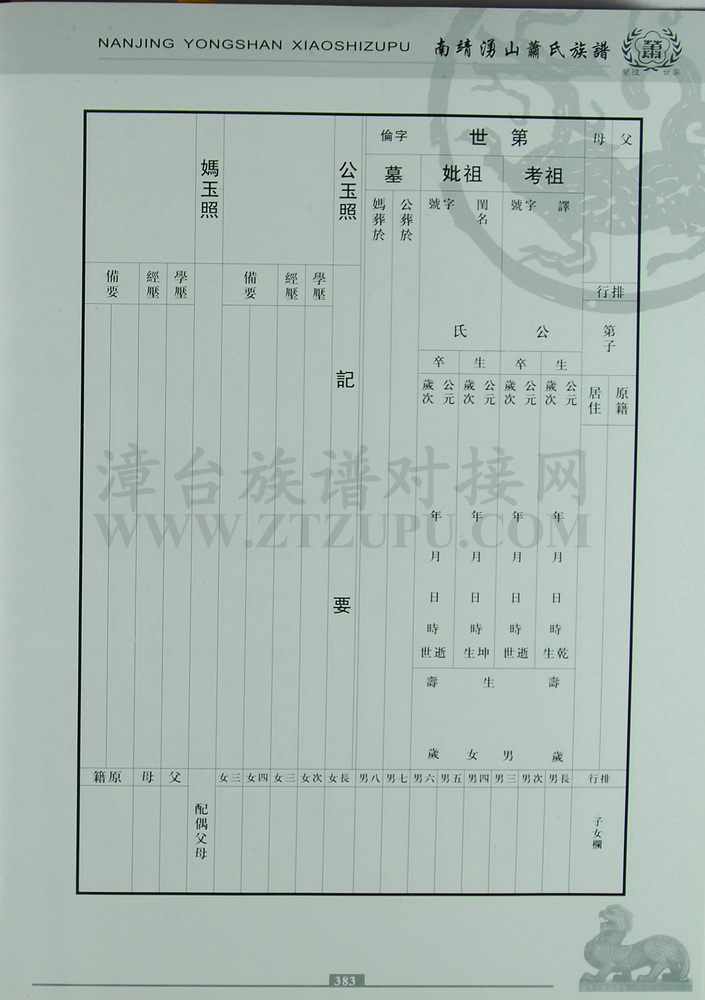 NANJING YONGSHAN XIAOSHIZUPU 南靖湧山蕭氏族譜
蕭
蘭陵 世家
父 母
行排
第子
原籍
居住
第 世
字倫
考祖
妣祖
墓
譯
號字
閨名
號字
公葬於
媽葬於
公
氏
生
卒
生
卒
公元
歲次
公元
歲次
公元
歲次
公元
歲次
年 月 日 時
年 月 日 時
年 月 日 時
年 月 日 時
生乾
世逝
生坤
世逝
壽
生
壽
歲
男
女
歲
公玉照
記 要
學壓
經壓
備要
媽玉照
學壓
經壓
備要
行排
男長
男次
男三
男四
男五
男六
男七
男八
女長
女次
女三
女四
女三
子女欄
配偶父母
父
母
籍原
漳台族谱对接网
WWW.ZTZUPU.COM
383